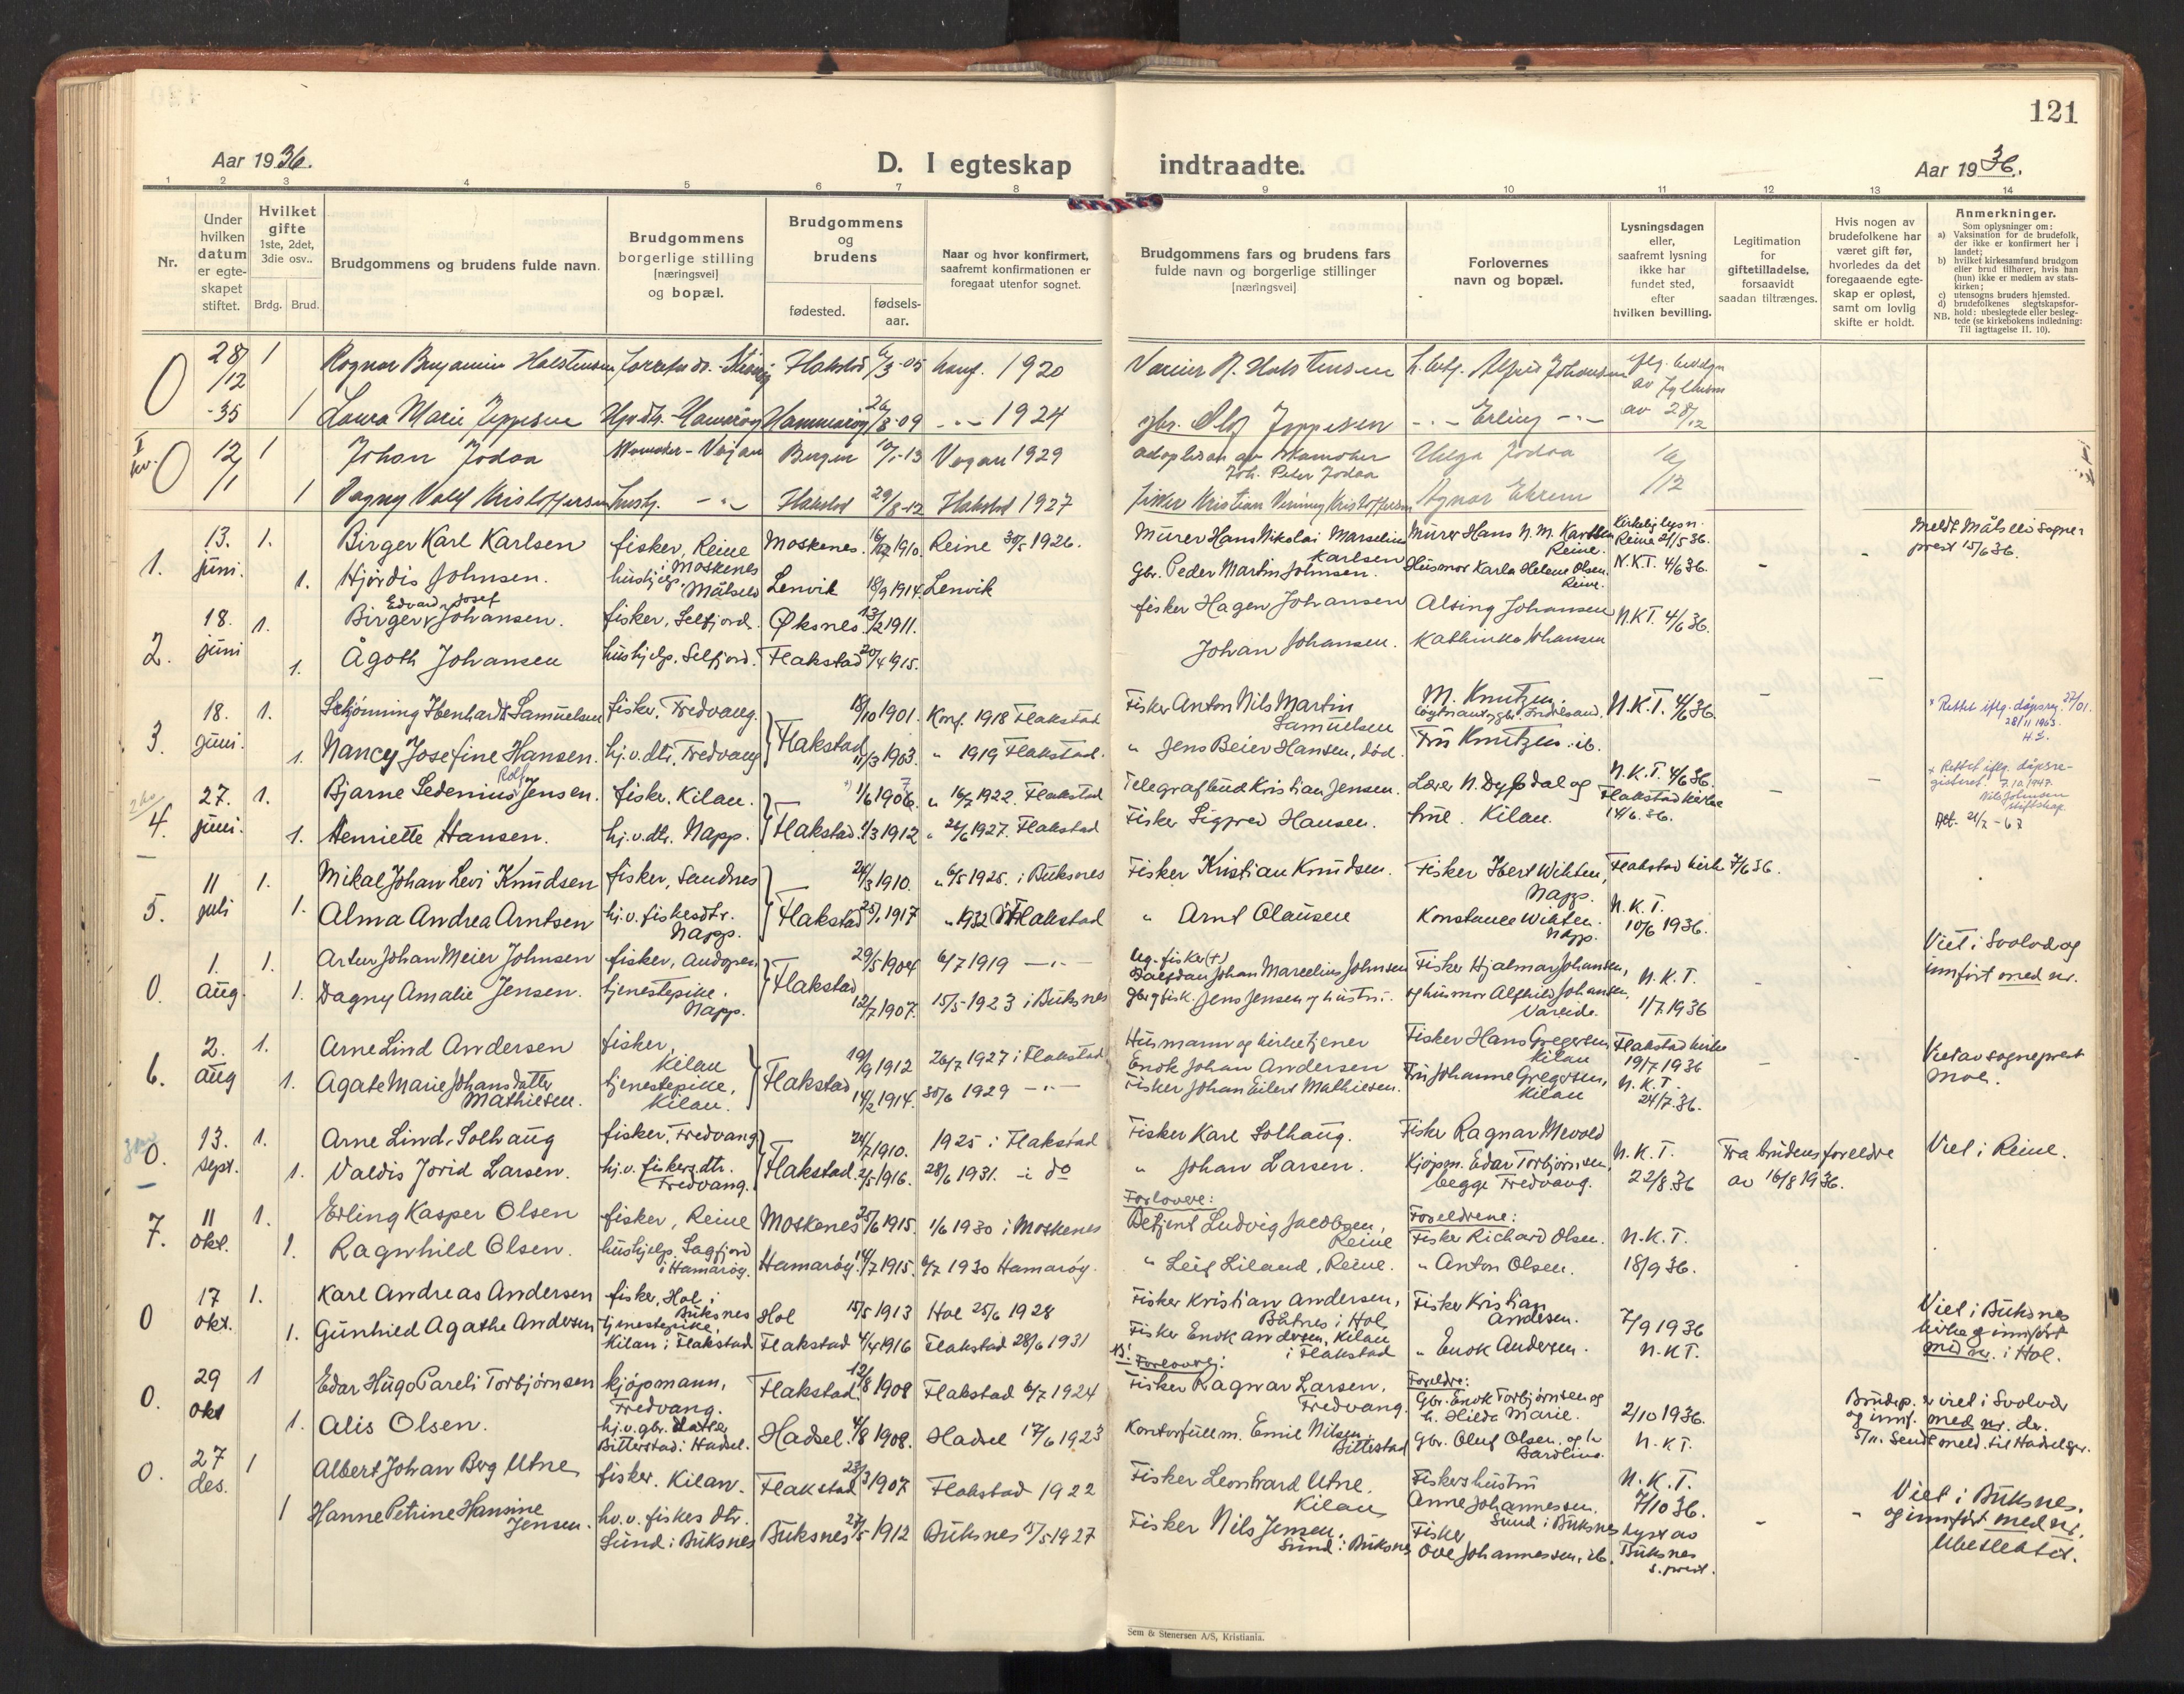 121
Aar 1936.
D. I egteskap indtraadte.
Aar 1936.
1 2 3 4 5 6 7 8 9 10 11 12 13 14
Nr.
Under hvilken datum er egteskapet stiftet.
Hvilket gifte 1ste, 2det, 3die osv..
Brdg. Brud.
Brudgommens og brudens fulde navn.
Brudgommens borgerlige stilling [næringsvei] og bopæl.
Brudgommens og brudens
fødested.
fødsels-aar.
Naar og hvor konfirmert, saafremt konfirmationen er foregaat utenfor sognet.
Brudgommens fars og brudens fars fulde navn og borgerlige stillinger [næringsvei]
Forlovernes navn og bopæl.
Lysningsdagen eller, saafremt lysning ikke har fundet sted, efter hvilken bevilling.
Legitimation for giftetilladelse, forsaavidt saadan tiltrænges.
Hvis nogen av brudefolkene har været gift før, hvorledes da det foregaaende egteskap er opløst, samt om lovlig skifte er holdt.
Anmerkninger.
Som oplysninger om:
a) Vaksination for de brudefolk, der ikke er konfirmert her i landet;
b) hvilket kirkesamfund brudgom eller brud tilhører, hvis han (hun) ikke er medlem av statskirken;
c) utensogns bruders hjemsted.
d) brudefolkenes slegtskapsforhold: ubeslegtede eller beslegtede (se kirkebokens indledning: NB. Til iagttagelse II. 10).
0 28/12 -35 1 Ragnar Benjamin Halstensen Flakstad 6/3-05 konf. 1920
1 Laura Marie Jeppesen Hammarøy 26/8-09 -"- 1924 gbr. Olof Jeppesen -"- Erling -"- av 28/12
0 12/1 1 Johan Jodaa Bergen 1913 Vegan 1929 Joh. Peter Jodaa Helga Jodaa
1 Dagny Valf Kristoffersen Flakstad 29/8-12 Flakstad 1927 fisker Kristian Kristoffersen Agnar Ekrem
1. 13. juni. 1. Birger Karl Karlsen fisker, Reine i Moskenes Moskenes. 1910. Reine 30/5 1926. Murer Hans Nikolai Marselius Karlsen Murer Hans N. M. Karlsen Reine. Kirkelig lysn. Reine 21/5 36. Meldt Målselv sogneprest 15/6 36.
1. Hjørdis Johnsen. hushjelp. Målselv Lenvik 18/9 1914. Lenvik Gbr. Peder Martin Johnsen. Husmor Karla Helene Olsen. Reine. N.K.T. 4/6 36. -
2. 18. juni 1. Birger Edvard Josef Johansen. fisker, Selfjord. Øksnes. 13/2 1911. fisker Hagen Johansen Alsing Johansen N.K.T. 4/6 36.
1. Ågoth Johansen hushjelp. Selfjord. Flakstad 20/4 1915. Johan Johansen. Kathinka Johansen
3. 18. juni. 1. Schjønning Ibenhardt Samuelsen fisker. Fredvang. Flakstad 18/10 1901. Konf. 1918 Flakstad Fisker Anton Nils Martin Samuelsen M. Knutzen. N.K.T. 4/6 36. Rettet iflg. dåpsreg. 22/01. 28/11 1963. H.S.
1. Nancy Josefine Hansen. hj.v.dtr. Fredvang 11/3 1903. " 1919 Flakstad. " Jens Beier Hansen, død. Fru Knutzen. ib.
4. 27. juni. 1. Bjarne Sedenius Rolf Jensen. fisker. Kilan. Flakstad. 1/6 1906. " 16/7 1922. Flakstad Telegrafbud Kristian Jensen. Lærer N. Dybdal og N.K.T. 4/6 36. Rettet iflg. dåpsregisteret. 7.10.1947. Nils Johnsen stiftskap.
1. Henriette Hansen. hj.v.dtr. Napp. 1/3 1912 " 26/6 1927. Flakstad Fisker Sigfred Hansen. frue. Kilan. Flakstad kirke 14/6.36. Att. 21/7-67
5. 11 juli 1. Mikal Johan Levi Knudsen fisker, Sandnes Flakstad 24/3 1910. " 6/5 1925. i Buksnes Fisker Kristian Knudsen. Fisker Ibert Wikten, Napp. Flakstad kirke 7/6 36.
1. Alma Andrea Arntsen hj.v. fiskesdtr. Napp. 25/1 1917 " 1932 Flakstad " Arnt Olausen Konstanse Wikten. Napp. N.K.T. 10/6 1936.
0. 1. aug. 1. Artur Johan Meier Johnsen fisker, Andopen Flakstad 29/5 1904 6/7 1919 -"- Ug. fisker (+) Balsdau Johan Marcelius Johnsen Fisker Hjalmar Johansen, N.K.T. Viet i Svolvær og innført med nr.
1. Dagny Amalie Jensen. tjenestepike. Napp. 12/7 1907. 15/5-1923 i Buksnes gbr og fisk. Jens Jensen og hustru. og husmor Alfhild Johansen, Vareide. 1/7.1936
6. 2. aug 1. Arne Lind Andersen fisker, Kilan Flakstad 19/9 1912 26/7 1927 i Flakstad Husmann og kirketjener Enok Johan Andersen Fisker Hans Gregersen Kilan Flakstad kirke 19/7 1936 Viet av sogneprest Moe.
1. Agate Marie Johansdatter Mathiesen. tjenestepike, Kilan. 14/2 1914. 30/6 1929 -"- Fisker Johan Eilert Mathiesen. Fru Johanne Gregersen, Kilan N.K.T. 24/7.36.
0. 13. sept. 1. Arne Lind. Solhaug fisker, Fredvang Flakstad. 24/7 1910. 1925 i Flakstad Fisker Karl Solhaug. Fisker Ragnar Mevold N.K.T. Fra brudens foreldre Viet i Reine.
1. Valdis Jorid Larsen. hj.v. fiskers dtr. Fredvang. 21/5 1916. 28/6 1931. i do " Johan Larsen. Kjøpm. Edar Torbjørnsen, begge Fredvang. 22/8.36 av 16/8 1936.
7. 11 okt. 1. Erling Kasper Olsen fisker, Reine Moskenes 25/6 1915 1/6 1930 i Moskenes Forlovere: Betjent Ludvig Jacobsen, Reine Foreldrene: Fisker Richard Olsen. N.K.T.
1. Ragnhild Olsen. hushjelp. Sagfjord i Hamarøy. Hamarøy. 14/7 1915. 6/7 1930 Hamarøy. " Leif Liland, Reine. " Anton Olsen. 18/9 36.
0 17 okt. 1. Karl Andreas Andersen fisker, Hol i Buksnes Hol 15/5 1913 Hol 25/6 1928 Fisker Kristian Andersen, i Hol Fisker Kristian Andersen. 7/9 1936 Viet i Buksnes kirke og innført med nr. i Hol.
1. Gunhild Agathe Andersen tjenestepike, Kilan i Flakstad Flakstad 4/4 1916 Flakstad 28/6 1931 Fisker Enok Andersen, Kilan i Flakstad " Enok Andersen. N.K.T.
0. 29 okt 1 Edar Hugo Pareli Torbjørnsen kjøpmann, Fredvang. Flakstad. 12/8 1908 Flakstad 6/7 1924 NB! Forlovere: Fisker Ragnar Larsen. Fredvang. Foreldre: Gbr. Enok Torbjørnsen og h. Hilda Marie. 2/10 1936. Brudep. er viet i Svolvær og innf. med nr. der.
1. Alis Olsen. hj.v. gbr. datter Bitterstad i Hadsel. Hadsel. 4/8 1908. Hadsel 17/6 1923 Kontorfullm. Emil Nilsen. Bitterstad Gbr. Oluf Olsen og h Bardline. N.K.T. 5/11. Sendt meld. til Hadsel spr.
0. 27 des. 1 Albert Johan Berg Utne fisker. Kilan. Flakstad 23/3 1907 Flakstad 1922 Fisker Leonhard Utne. Kilan Fiskers hustru Anne Johannessen. Sund i Buksnes N.K.T. 7/10 36. Viet i Buksnes. og innført med nr.
1 Hanne Petrine Hansine Jensen. hv.v. fiskes dtr. Sund i Buksnes Buksnes 27/5 1912 Buksnes 15/5 1927 Fisker Nils Jensen. Sund i Buksnes Fisker Ove Johannessen, ib. Lyst av Buksnes s.prest. Ubeslektet.
Sem & Stenersen A/S, Kristiania.